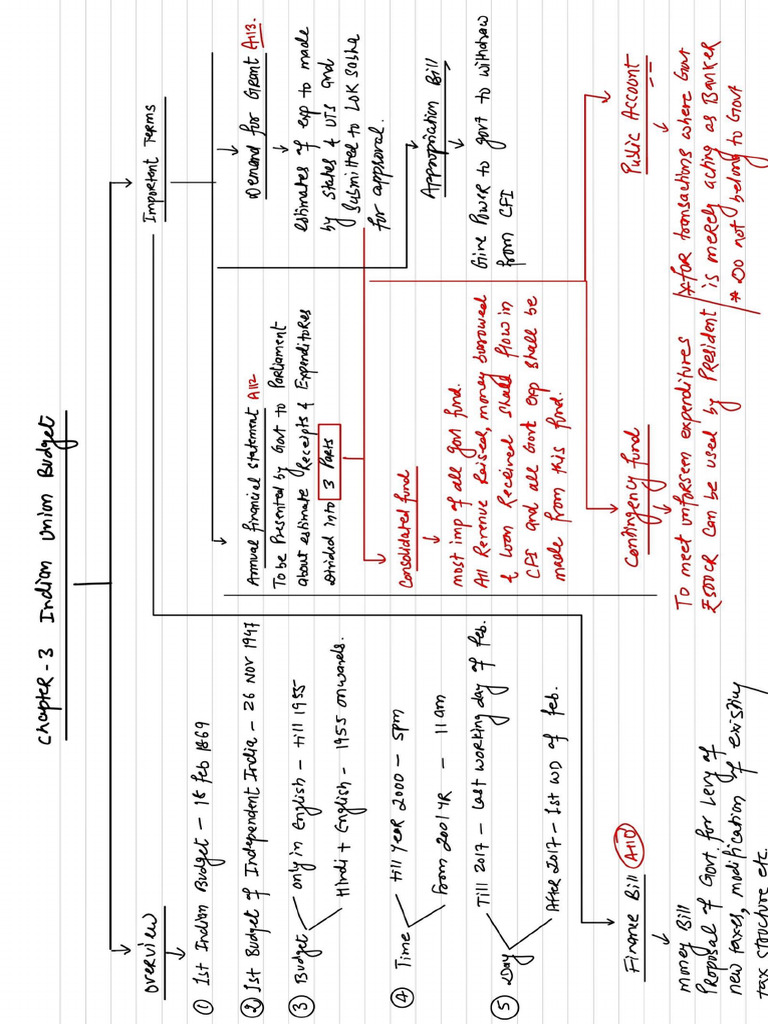 Chapter - 3 Indian Union Budget
overview
① 1st Indian Budget - 18 Feb 1869
② 1st Budget of Independent India - 26 Nov 1947
③ Budget
only in English - till 1955
Hindi + English - 1955 onwards.
④ Time
till year 2000 - 5pm
from 2001 YR - 11am
⑤ Day
Till 2017 - Last working day of Feb.
After 2017 - 1st WD of feb.
Important Terms
Annual financial statement A112
To be Presented by Govt to Parliament
about estimate Receipts & Expenditores
divided into 3 Parts
Demand for Grant A113.
estimates of exp to made
by states & UTs and
submitted to Lok Sabha
for approval.
Appropriation Bill
Give Power to govt to withdraw
from CFI
Consolidated fund
most imp of all govt fund.
All Revenue Raised, money borrowed
& Loan Received shall flow in
CFI and all Govt exp shall be
made from this fund.
Contingency fund
To meet unforseen expenditures
₹500CR can be used by President
Public Account
*for transactions where Govt
is merely acting as Banker
* Do not belong to Govt
Finance Bill A110
money Bill
Proposal of Govt. for Levy of
new taxes, modification of existing
tax structure etc.